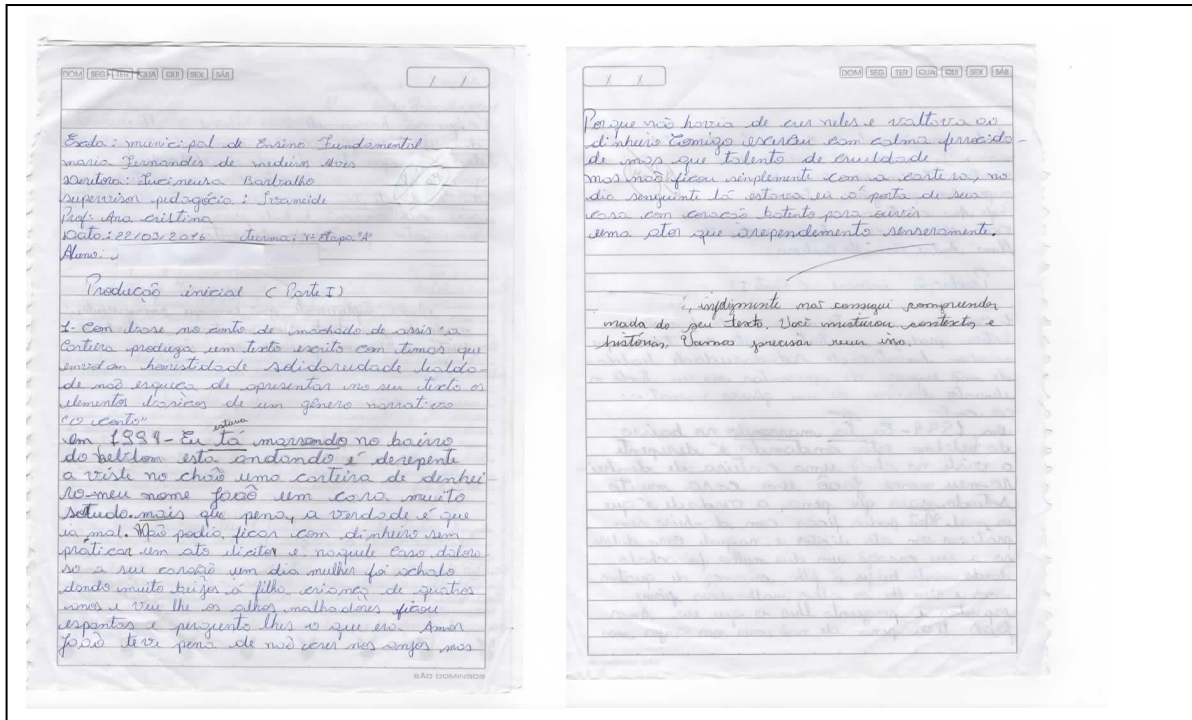 DOM SEG TER QUA QUI SEX SÁB
Escola: municipal de Ensino Fundamental
maria Fernandes de medeiros Alves
Diritora: Lucineusa Barbalho
supervison pedagócia: Ivaneide
Prof: Ana cristina
Data: 22/03/2016 turma: Etapa "A"
Aluno:
Produção inicial (Parte I)
1- Com base no conto de machado de assis "a
Carteira produza um texto escrito com temas que
envolvam honestidade solidareudade lealda-
de não esqueça de apresentar no seu texto os
elementos básicos de um gênero narrativo
"o conto"
estava
em 1991- Eu tá marrando no bairro
do beldom esta andando é derepente
a viste no chão uma carteira de denhei-
ro-meu nome joaõ um cara muito
sotudo. mais que pena, a verdade é que
ia mal. Não podia, ficar com dinheiro sem
praticar um ato elicitor e naquele caso, doloro-
so a seu coração um dia mulher foi achalo
dando muito beijos á filha criança de quatros
anos e viu lhe os olhos malhadores ficou
espantos e pergunto lhes o que era. Amor
João teve pena de não crer nos anjos mas
SÃO DOMINGOS
DOM SEG TER QUA QUI SEX SÁB
Porque não havia de crer neles e valtava ao
dinheiro Comigo escrau com calma ferocida-
de mas que talento de cruildade
mas não ficou sinplemente com a carteira, no
dia senguinte lá estava eu á porta de sua
casa com coração batento para ouvir
uma ator que arependemento senseramente.
, infelizmente não consegui compreender
nada do seu texto. Você misturou contextos e
histórias. Vamos precisar rever isso.